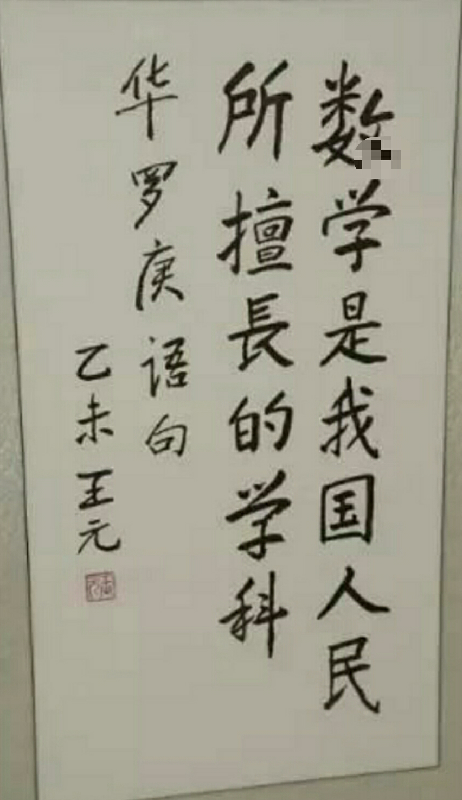 数学是我国人民
所擅長的学科
华罗庚语句
乙未王元